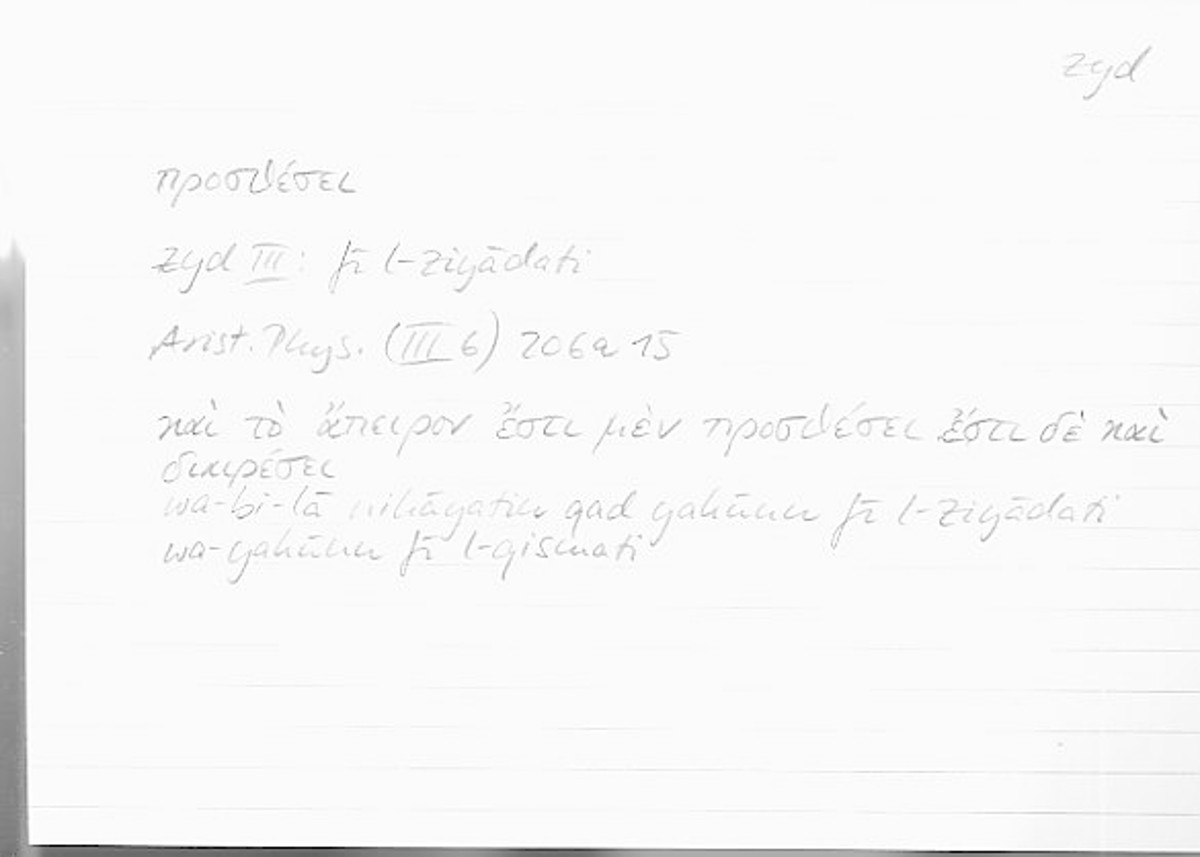 zyd
προσθέσει
zyd III: fī l-ziyādati
Arist. Phys. (III 6) 206a 15
καὶ τὸ ἄπειρον ἔστι μὲν προσθέσει ἔστι δὲ καὶ
διαιρέσει
wa-bi-lā nihāyatin qad yakūnu fī l-ziyādati
wa-yakūnu fī l-qismati